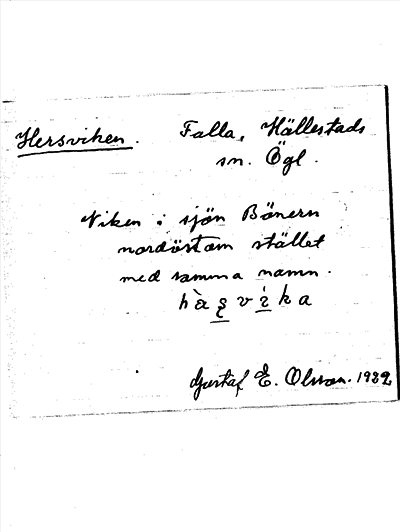 Hersviken. Falla, Hällestads
sn. Ögl.
Viken i sjön Bönern
nordöstom stället
med samma namn.
hà̀ʂvika
Gustaf E. Olsson. 1932